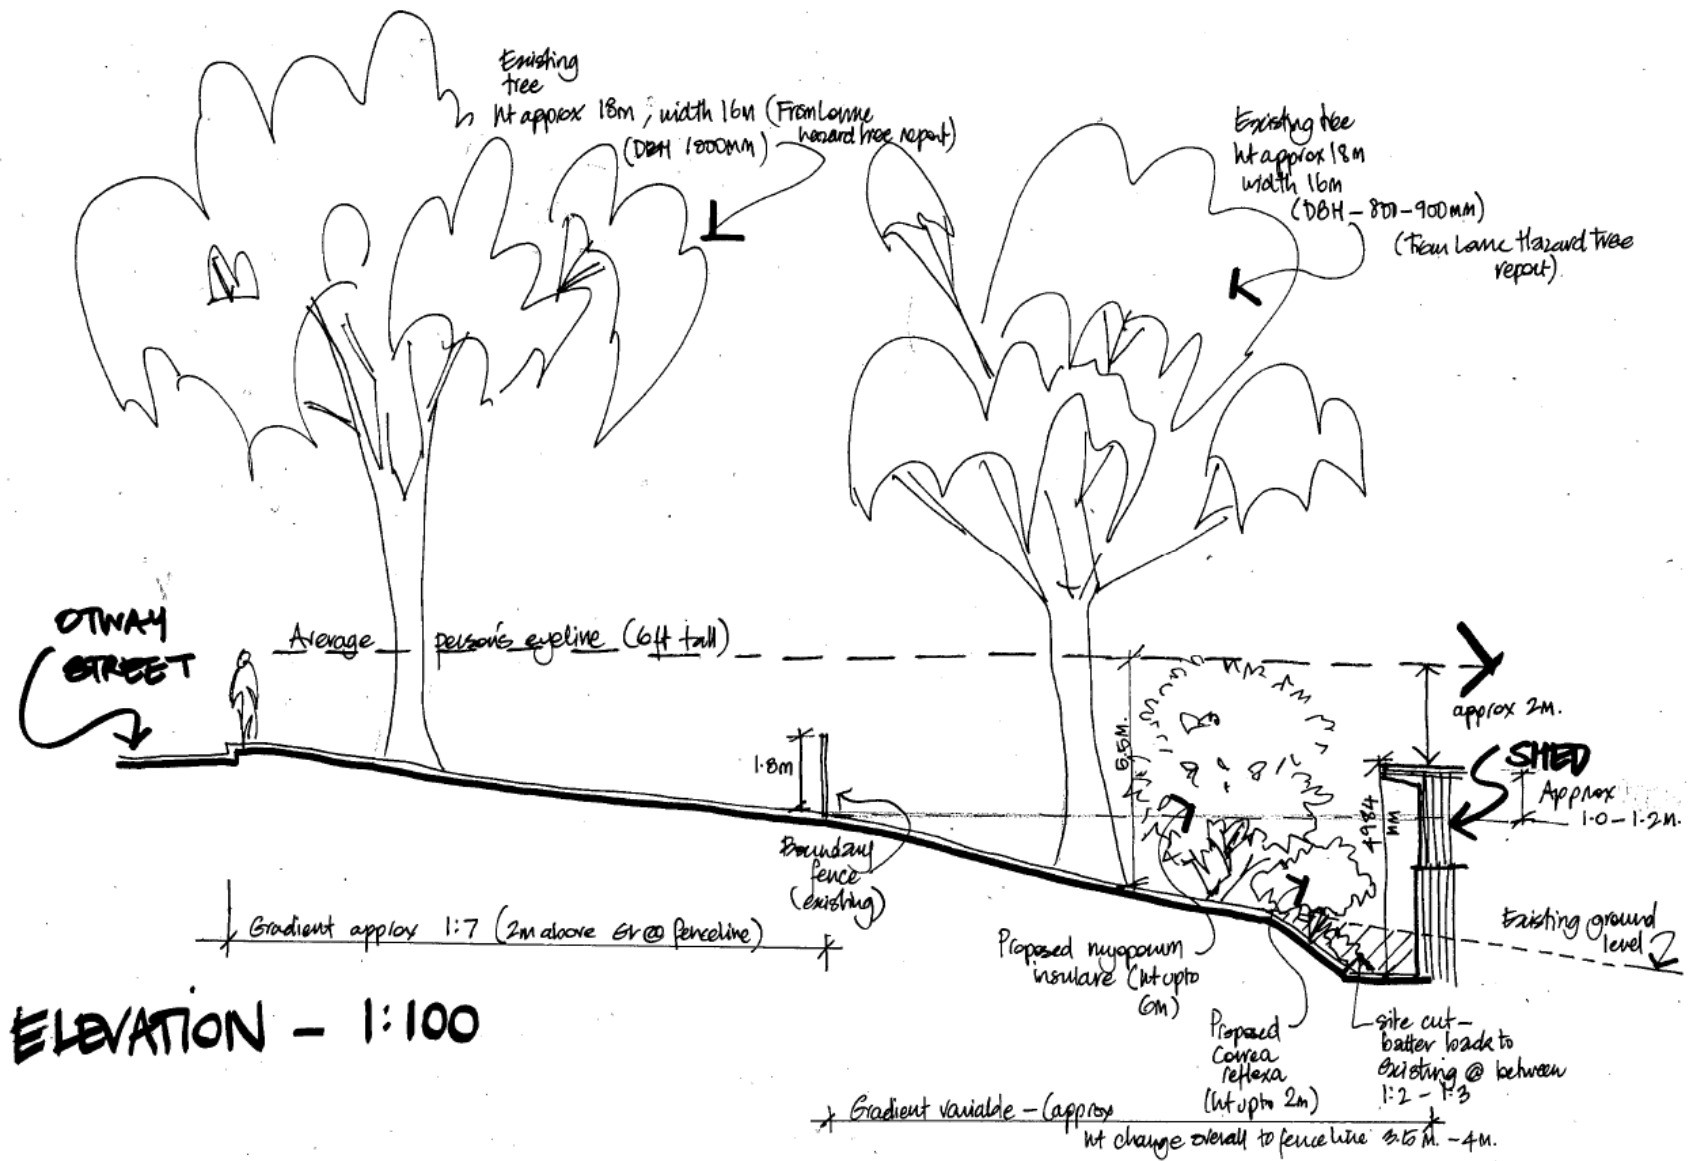 Existing
tree
ht approx 18m ; width 16m (From Lorne
hazard tree report)
(DBH 1800MM)
Existing tree
ht approx 18m
width 16m
(DBH - 800-900mm)
(From Lorne Hazard Tree
report).
OTWAY
STREET
Average person's eyeline (6ft tall)
approx 2M.
SHED
5.5M.
1.8m
4984
mm
Approx
1.0 - 1.2M.
Boundary
fence
(existing)
Gradient approx 1:7 (2m above @ fenceline)
Existing ground
level
Proposed myoporum
insulare (ht upto
6m)
ELEVATION - 1:100
Proposed
Correa
reflexa
(ht upto 2m)
site cut-
batter back to
existing @ between
1:2 - 1:3
Gradient variable - (approx
ht change overall to fenceline 3.5M. - 4M.